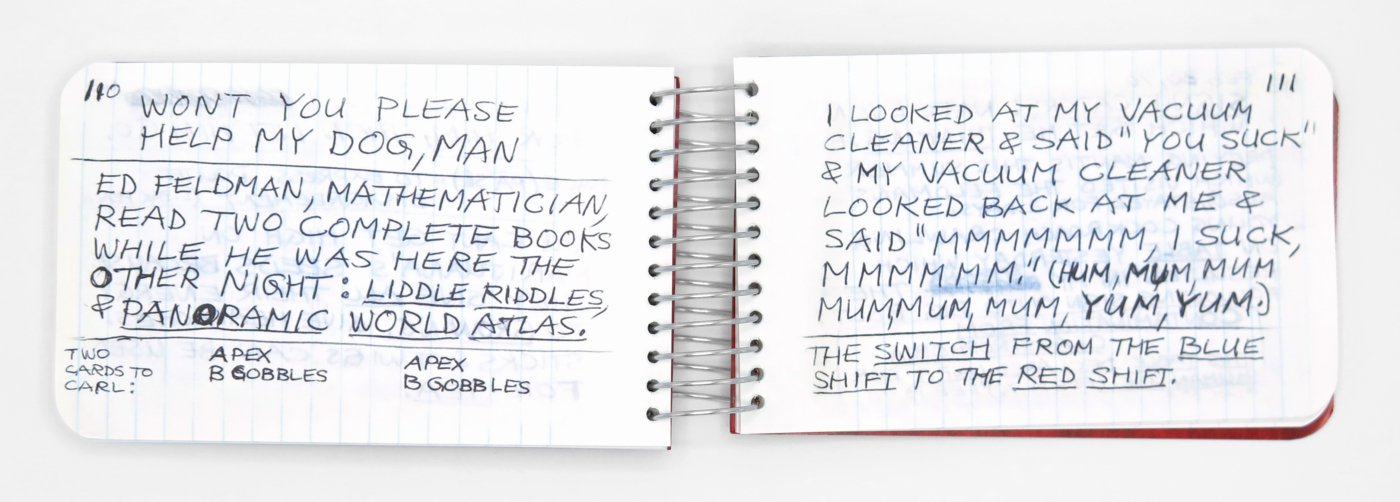 110
WON'T YOU PLEASE
HELP MY DOG, MAN
ED FELDMAN, MATHEMATICIAN,
READ TWO COMPLETE BOOKS
WHILE HE WAS HERE THE
OTHER NIGHT: LIDDLE RIDDLES,
& PANORAMIC WORLD ATLAS.
TWO
CARDS TO
CARL:
APEX
B GOBBLES
APEX
B GOBBLES
111
I LOOKED AT MY VACUUM
CLEANER & SAID "YOU SUCK"
& MY VACUUM CLEANER
LOOKED BACK AT ME &
SAID "MMMMMMMM, I SUCK,
MMMMMMM." (HUM, MUM, MUM
MUM, MUM, MUM, YUM, YUM.)
THE SWITCH FROM THE BLUE
SHIFT TO THE RED SHIFT.